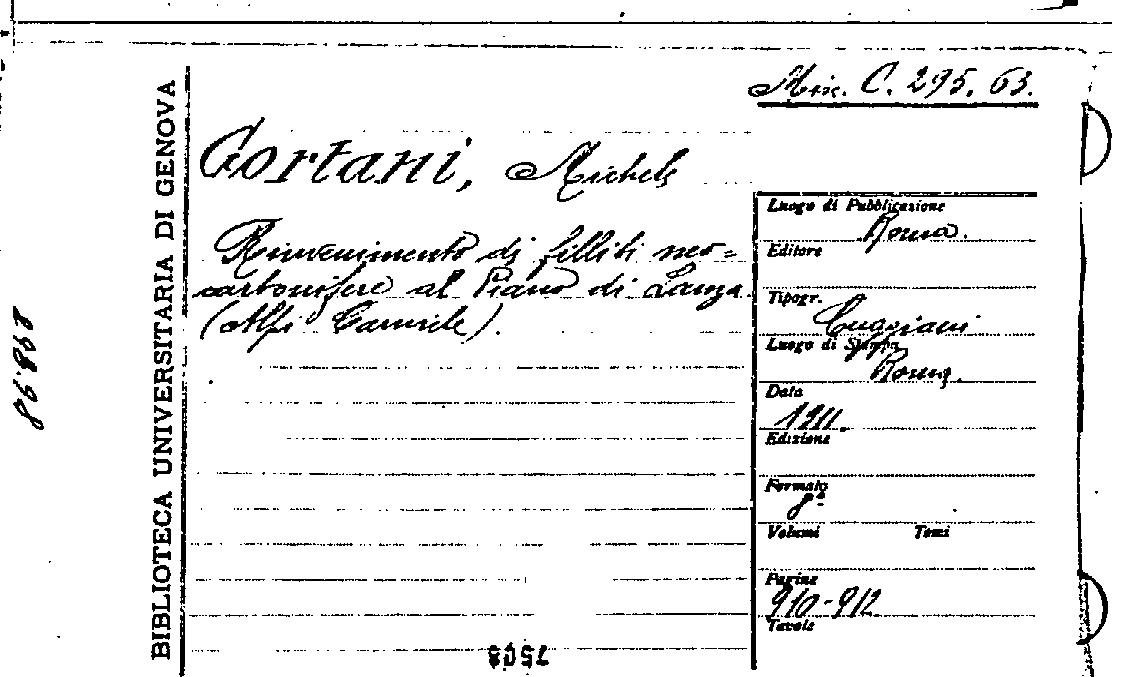 Min. C. 295. 63.
BIBLIOTECA UNIVERSITARIA DI GENOVA
Gortani, Michele
Rinvenimento di filliti neo=
carbonifere al Piano di Lanza
(Alpi Carniche).
Luogo di Pubblicazione
Roma.
Editore
Tipogr.
Cuggiani
Luogo di Stampa
Roma.
Data
1911.
Edizione
Formato
8º
Volumi Tomi
Pagine
910-912
Tavole